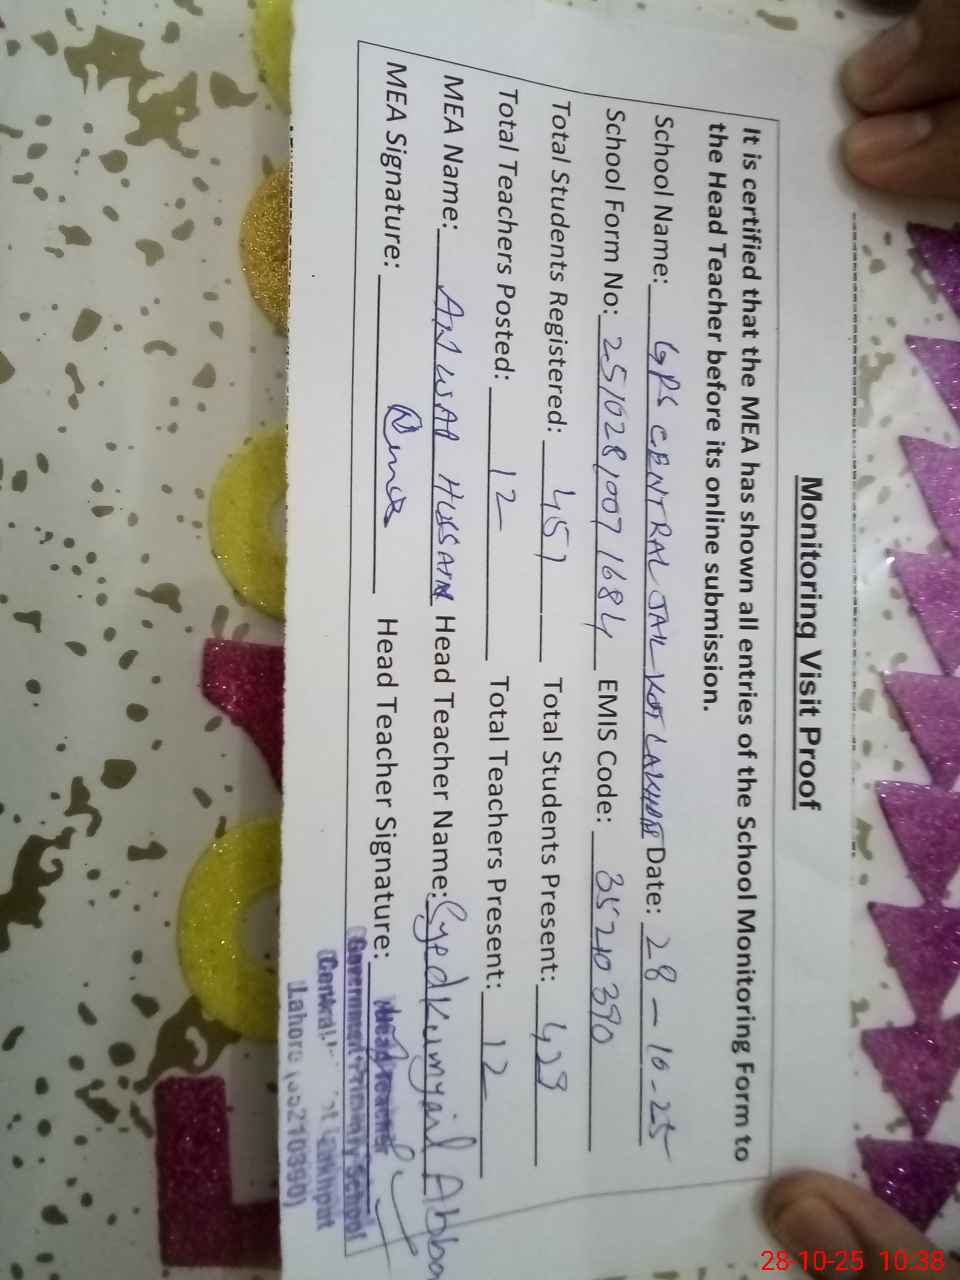 Monitoring Visit Proof
It is certified that the MEA has shown all entries of the School Monitoring Form to
the Head Teacher before its online submission.
School Name: GPS CENTRAL JAIL KOT LAKHPAT Date: 28-10-25
School Form No: 25102810071684 EMIS Code: 35210390
Total Students Registered: 457 Total Students Present: 429
Total Teachers Posted: 12 Total Teachers Present: 12
MEA Name: ANWAR HUSSAIN Head Teacher Name: Syed Kumyail Abba
MEA Signature: Head Teacher Signature:
Head Teacher
Government Primary School
Central Lakhpat
Lahore (35210390)
28-10-25 10:38